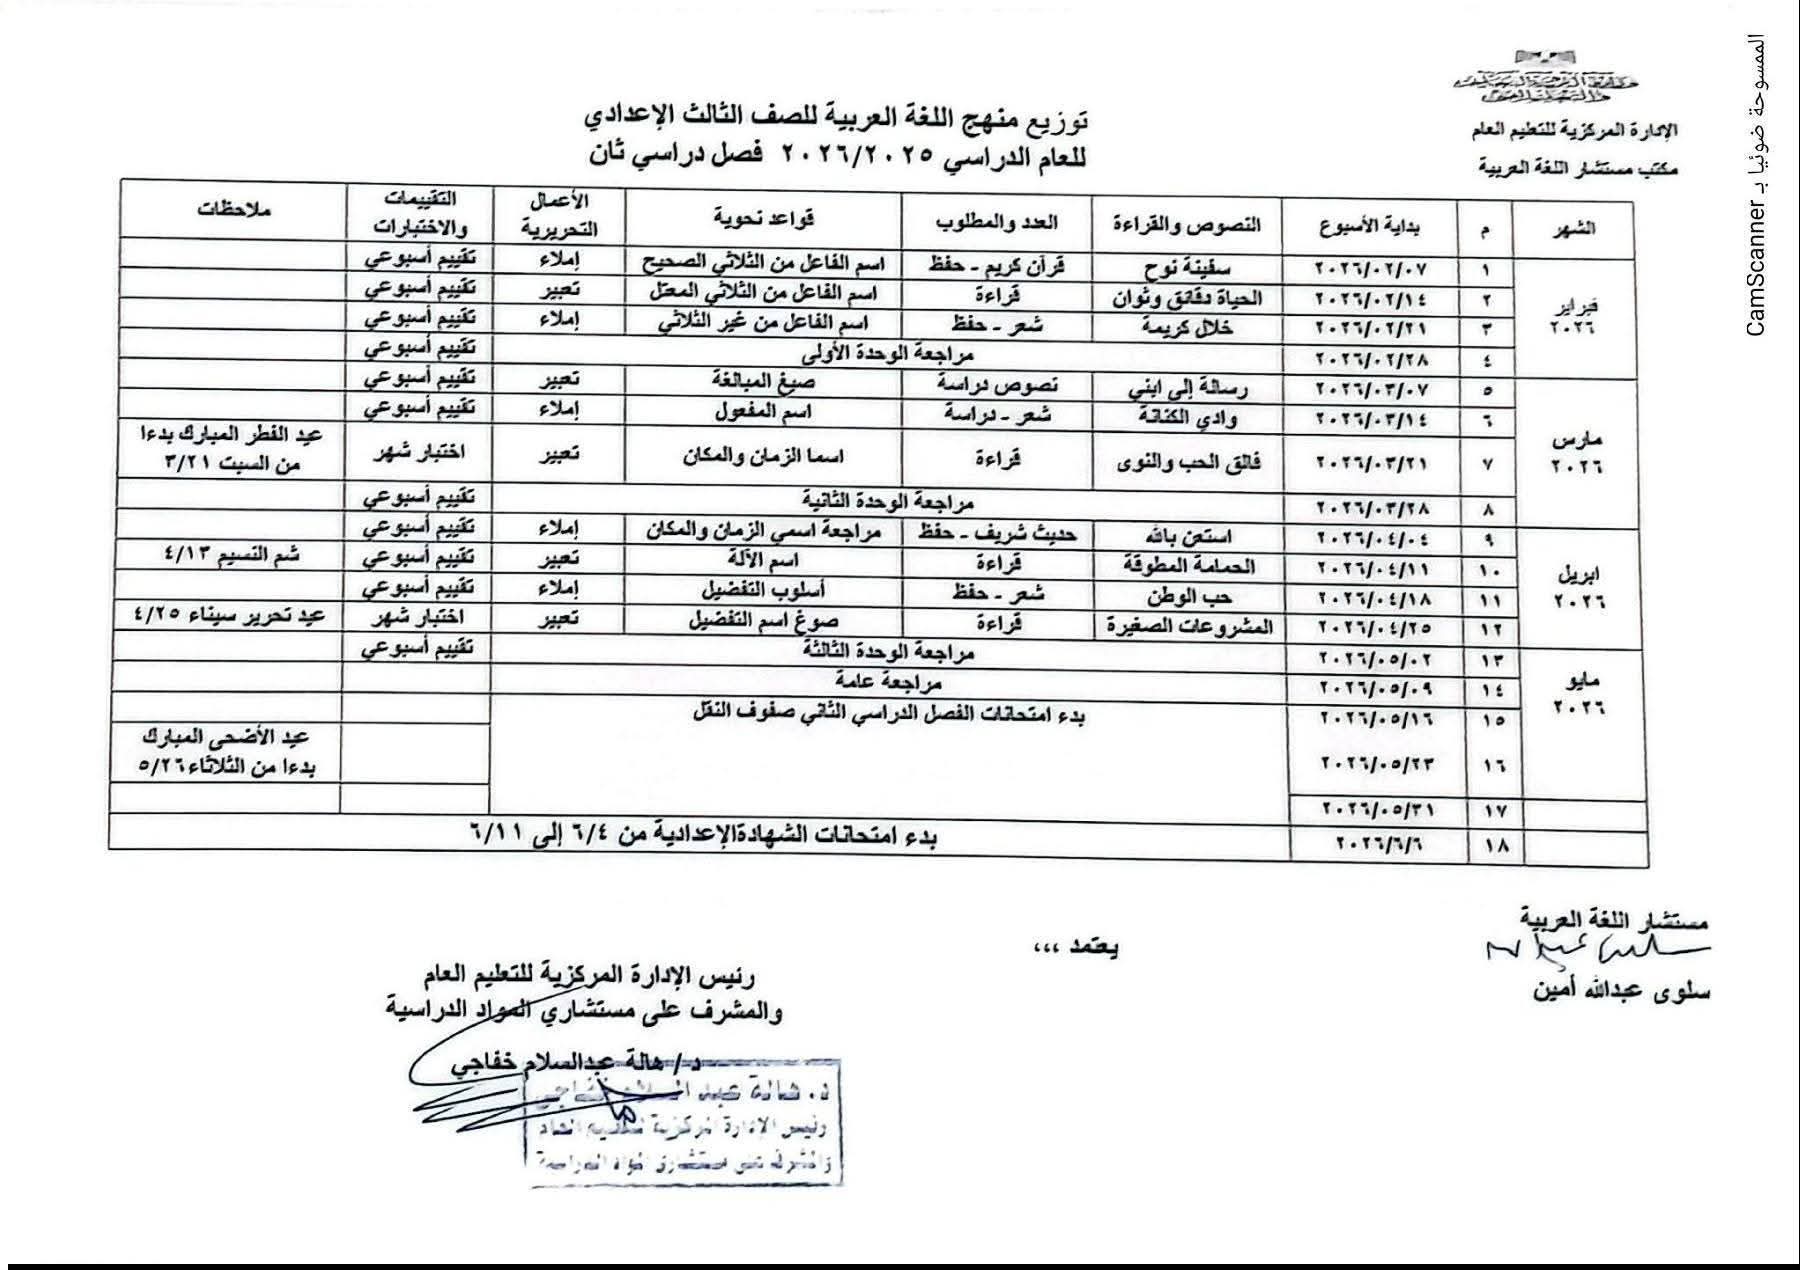 وزارة التربية والتعليم
والتعليم الفني
الإدارة المركزية للتعليم العام
مكتب مستشار اللغة العربية
توزيع منهج اللغة العربية للصف الثالث الإعدادي
للعام الدراسي ٢٠٢٦/٢٠٢٥ فصل دراسي ثان
الشهر م بداية الأسبوع النصوص والقراءة العدد والمطلوب قواعد نحوية الأعمال التحريرية التقييمات والاختبارات ملاحظات
فبراير ٢٠٢٦
١ ٢٠٢٦/٠٢/٠٧ سفينة نوح قرآن كريم - حفظ اسم الفاعل من الثلاثي الصحيح إملاء تقييم أسبوعي
٢ ٢٠٢٦/٠٢/١٤ الحياة دقائق وثوان قراءة اسم الفاعل من الثلاثي المعتل تعبير تقييم أسبوعي
٣ ٢٠٢٦/٠٢/٢١ خلال كريمة شعر - حفظ اسم الفاعل من غير الثلاثي إملاء تقييم أسبوعي
٤ ٢٠٢٦/٠٢/٢٨ مراجعة الوحدة الأولى تقييم أسبوعي
مارس ٢٠٢٦
٥ ٢٠٢٦/٠٣/٠٧ رسالة إلى ابني نصوص دراسة صيغ المبالغة تعبير تقييم أسبوعي
٦ ٢٠٢٦/٠٣/١٤ وادي الكنانة شعر - دراسة اسم المفعول إملاء تقييم أسبوعي
٧ ٢٠٢٦/٠٣/٢١ فالق الحب والنوى قراءة اسما الزمان والمكان تعبير اختبار شهر عيد الفطر المبارك بدءا من السبت ٣/٢١
٨ ٢٠٢٦/٠٣/٢٨ مراجعة الوحدة الثانية تقييم أسبوعي
ابريل ٢٠٢٦
٩ ٢٠٢٦/٠٤/٠٤ استعن بالله حديث شريف - حفظ مراجعة اسمي الزمان والمكان إملاء تقييم أسبوعي
١٠ ٢٠٢٦/٠٤/١١ الحمامة المطوقة قراءة اسم الآلة تعبير تقييم أسبوعي شم النسيم ٤/١٣
١١ ٢٠٢٦/٠٤/١٨ حب الوطن شعر - حفظ أسلوب التفضيل إملاء تقييم أسبوعي
١٢ ٢٠٢٦/٠٤/٢٥ المشروعات الصغيرة قراءة صوغ اسم التفضيل تعبير اختبار شهر عيد تحرير سيناء ٤/٢٥
مايو ٢٠٢٦
١٣ ٢٠٢٦/٠٥/٠٢ مراجعة الوحدة الثالثة تقييم أسبوعي
١٤ ٢٠٢٦/٠٥/٠٩ مراجعة عامة
١٥ ٢٠٢٦/٠٥/١٦ بدء امتحانات الفصل الدراسي الثاني صفوف النقل
١٦ ٢٠٢٦/٠٥/٢٣ عيد الأضحى المبارك بدءا من الثلاثاء ٥/٢٦
١٧ ٢٠٢٦/٠٥/٣١
١٨ ٢٠٢٦/٦/٦ بدء امتحانات الشهادةالإعدادية من ٦/٤ إلى ٦/١١
مستشار اللغة العربية
سلوى عبدالله أمين
يعتمد ،،،
رئيس الإدارة المركزية للتعليم العام
والمشرف على مستشاري المواد الدراسية
د/ هالة عبدالسلام خفاجي
د. هالة عبد السلام خفاجي
رئيس الإدارة المركزية للتعليم العام
والمشرف على مستشاري المواد الدراسية
الممسوحة ضوئيا بـ CamScanner